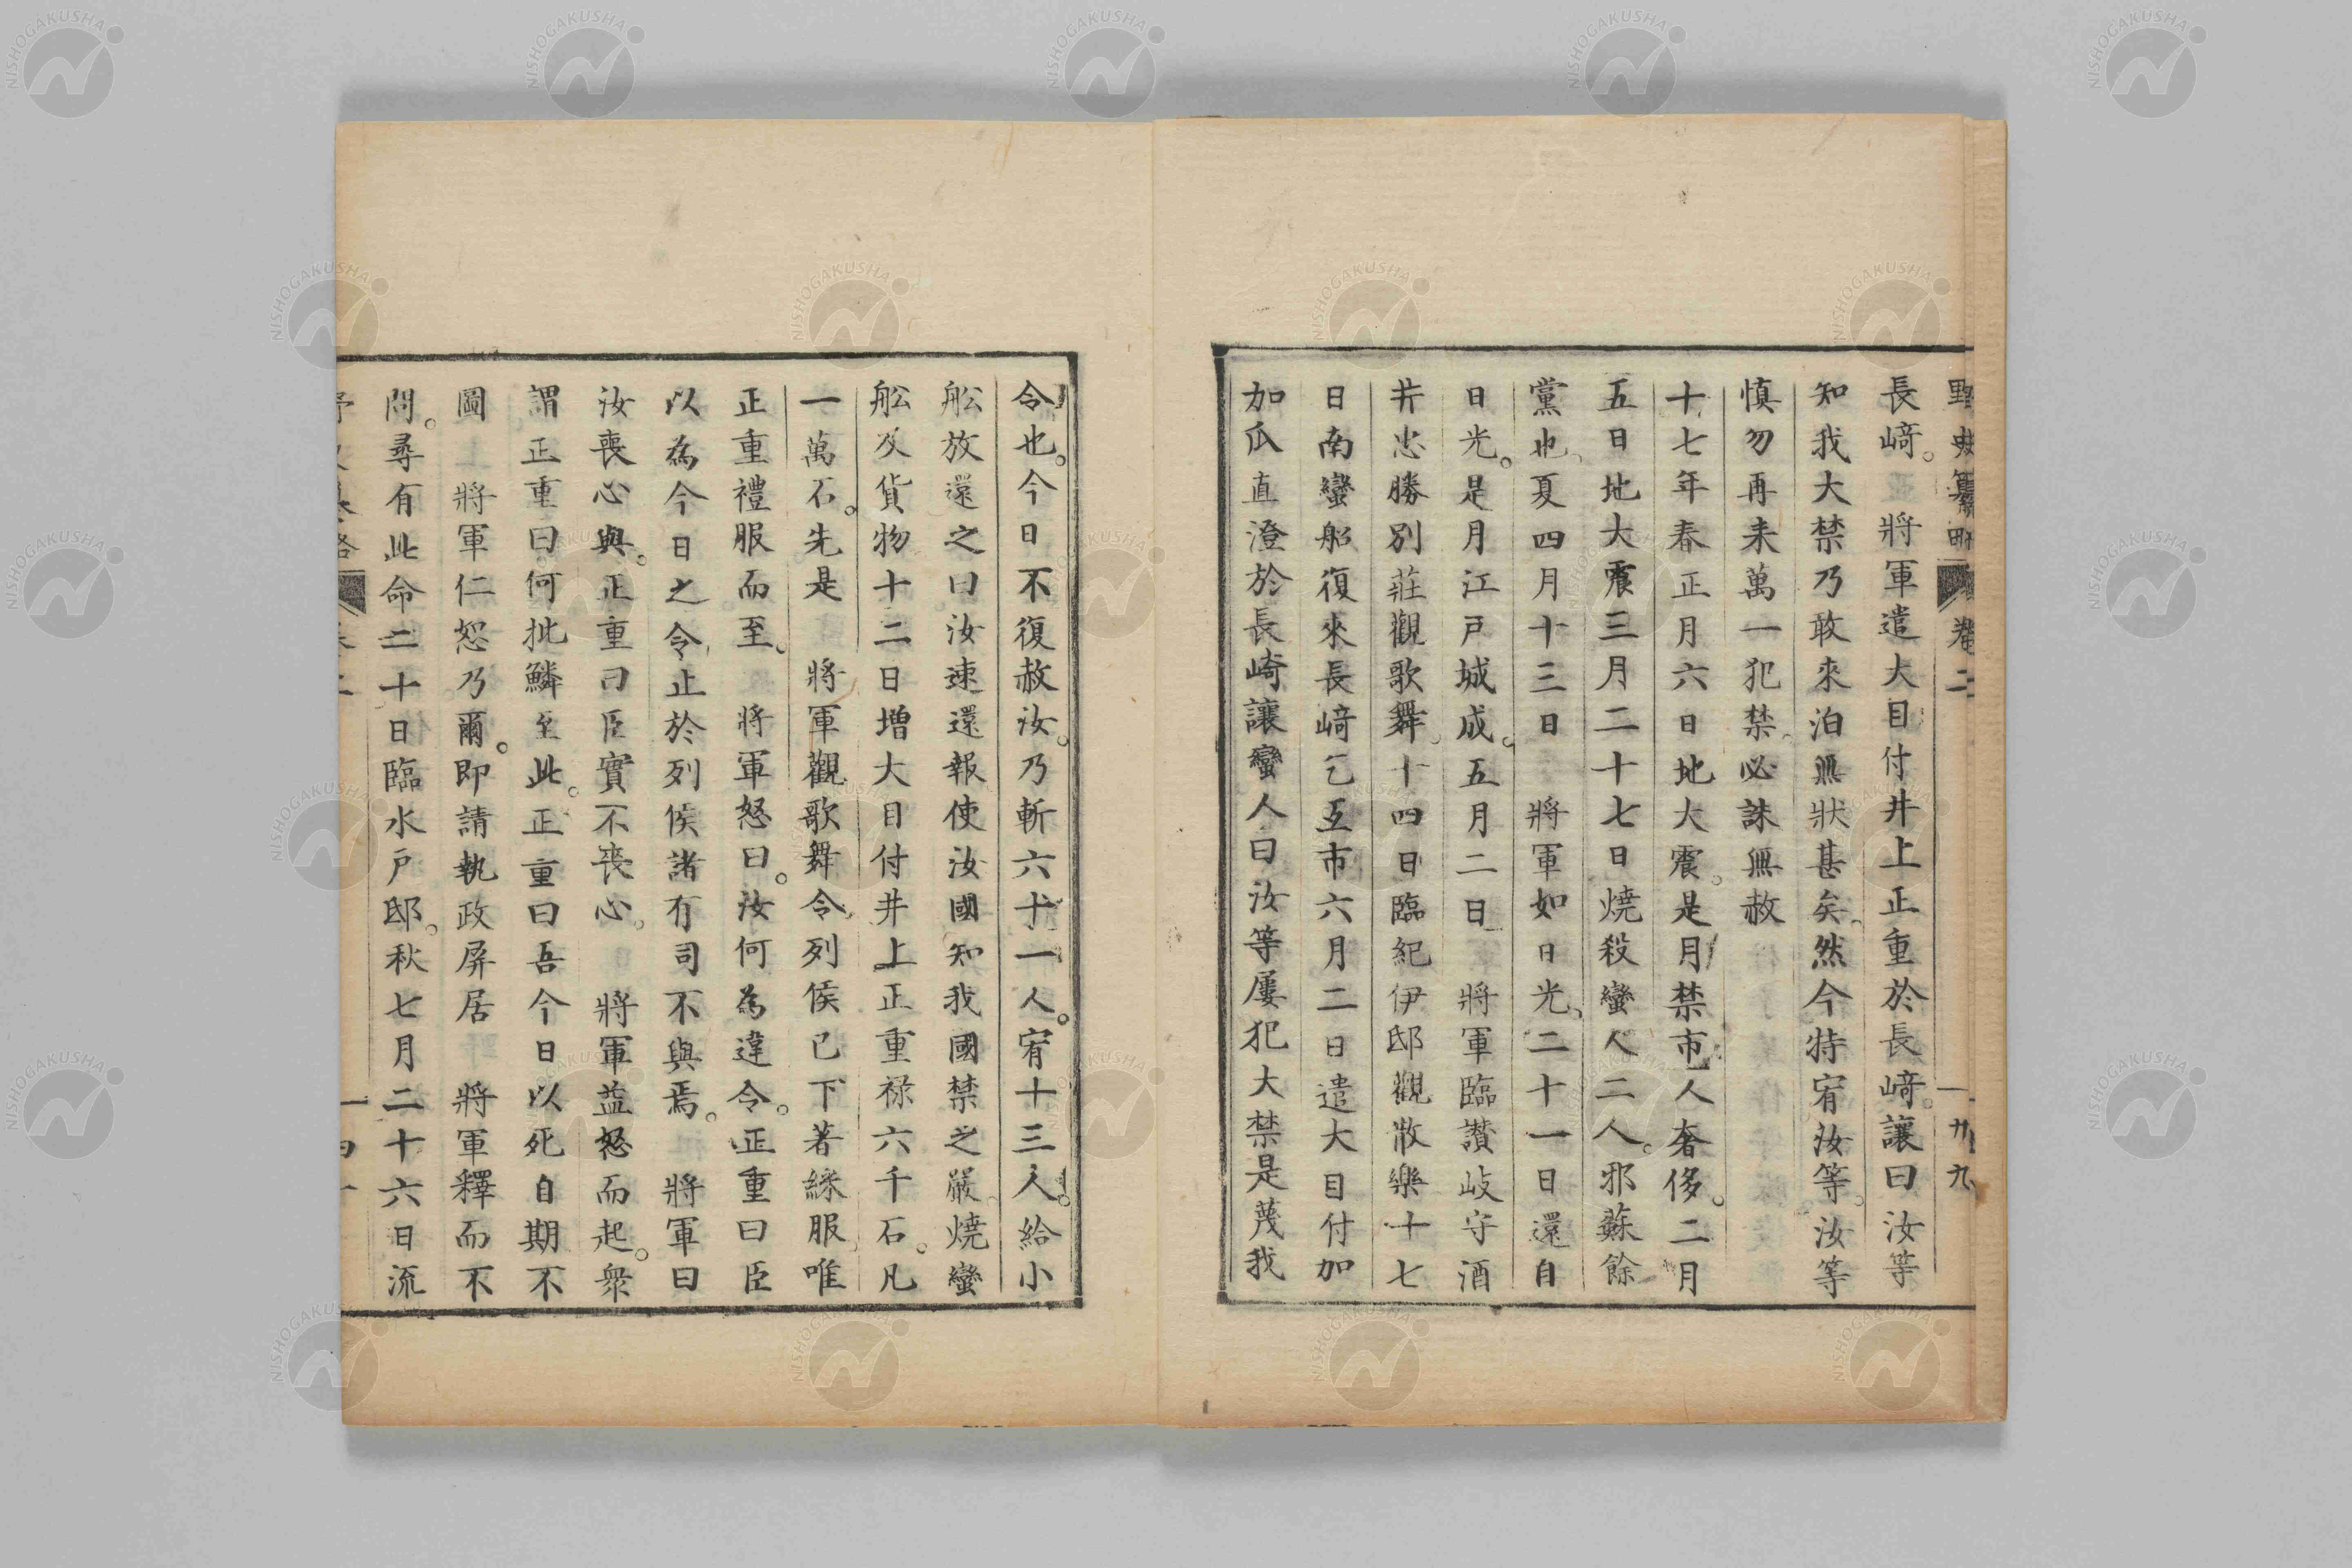 野史纂略 卷二 廿九
長﨑。 將軍遣大目付井上正重於長﨑。讓曰汝等
知我大禁乃敢來泊無狀甚矣。然今特宥汝等。汝等
慎勿再来萬一犯禁。必誅無赦
十七年春正月六日地大震。是月禁市人奢侈。二月
五日地大震三月二十七日燒殺蠻人二人。邪蘇餘
黨也。夏四月十三日 將軍如日光。二十一日還自
日光。是月江戸城成。五月二日 將軍臨讃岐守酒
井忠勝別莊觀歌舞。十四日臨紀伊邸觀散樂十七
日南蠻船復來長﨑乞互市六月二日遣大目付加
加爪直澄於長崎讓蠻人曰汝等屢犯大禁是蔑我
令也。今日不復赦汝。乃斬六十一人。宥十三人。給小
舩放還之曰汝速還報使汝國知我國禁之嚴燒蠻
舩及貨物十二日增大目付井上正重禄六千石。凡
一萬石。先是 將軍觀歌舞令。列侯已下著綵服唯
正重禮服而至。 將軍怒曰。汝何為違令。正重曰臣
以為今日之令止於列侯諸有司不與焉。 將軍曰
汝喪心與。正重曰臣實不喪心。 將軍益怒而起。衆
謂正重曰何批鱗至此。正重曰吾今日以死自期不
圖 將軍仁恕乃爾。即請執政屏居 將軍釋而不
問。尋有此命二十日臨水戸邸。秋七月二十六日流
NISHOGAKUSHA